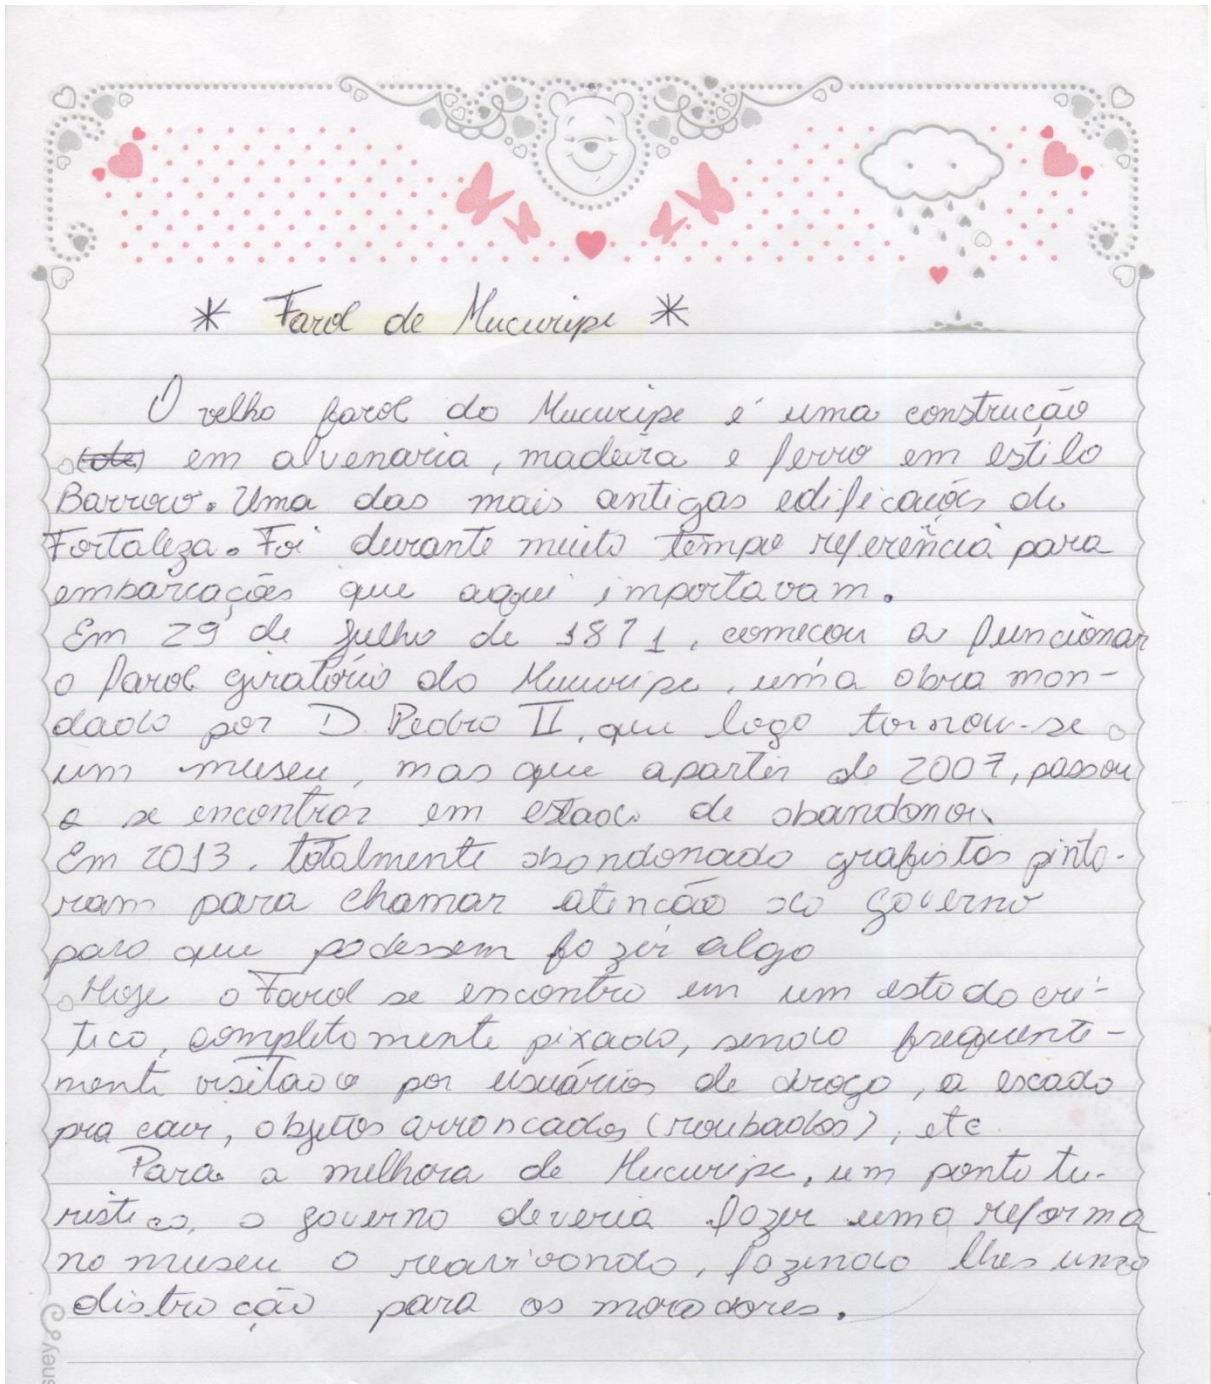 * Farol de Mucuripe *
O velho farol do Mucuripe é uma construção
em alvenaria, madeira e ferro em estilo
Barroco. Uma das mais antigas edificações de
Fortaleza. Foi durante muito tempo referência para
embarcações que aqui importavam.
Em 29 de julho de 1871, começou a funcionar
o farol giratório do Mucuripe, uma obra man-
dado por D. Pedro II, que logo tornou-se
um museu, mas que apartir de 2007, passou
a se encontrar em estado de abandono.
Em 2013, totalmente abandonado grafistas pinta-
ram para chamar atenção do governo
para que podessem fazer algo
Hoje o Farol se encontra em um estado crí-
tico, completamente pixado, sendo frequente-
mente visitado por usuários de droga, a escada
pra cair, objetos arrancados (roubados), etc
Para a melhora de Mucuripe, um ponto tu-
rístico, o governo deveria fazer uma reforma
no museu o reavivando, fazendo lhes uma
distração para os moradores.
sney